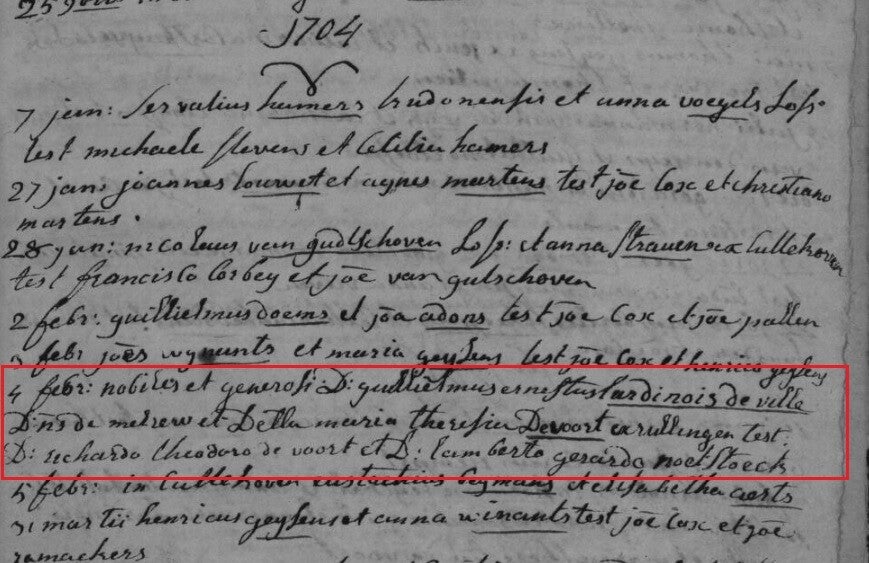 1704
7 jan: Servatius hamers trudonensis et anna voegels Loss:
test michaele stevens et Cecilia hamers
27 jan: joannes Courvet et agnes martens test jõe Cox et christiano
martens.
28 jan: nicolaus van gudtschoven Loss: et anna Strauven ex Cuttekoven
test francisco Corbey et jõe van gutschoven
2 febr: guillielmus doems et jõa adons test jõe Cox et jõe
3 febr joẽs wynunts et maria geysens test jõe Cox et henrico geysens
4 febr: nobiles et generosi: D: guillielmus ernestus sardinois de ville
D:ns de et Della maria theresia De voort ex rullingen test:
D: richardo theodoro de voort et D: lamberto gerardo
5 febr: in Cuttekoven eustachius et elisabetha aerts
31 martii henricus geysens et anna winants test jõe Cox et jõe
ramaekers